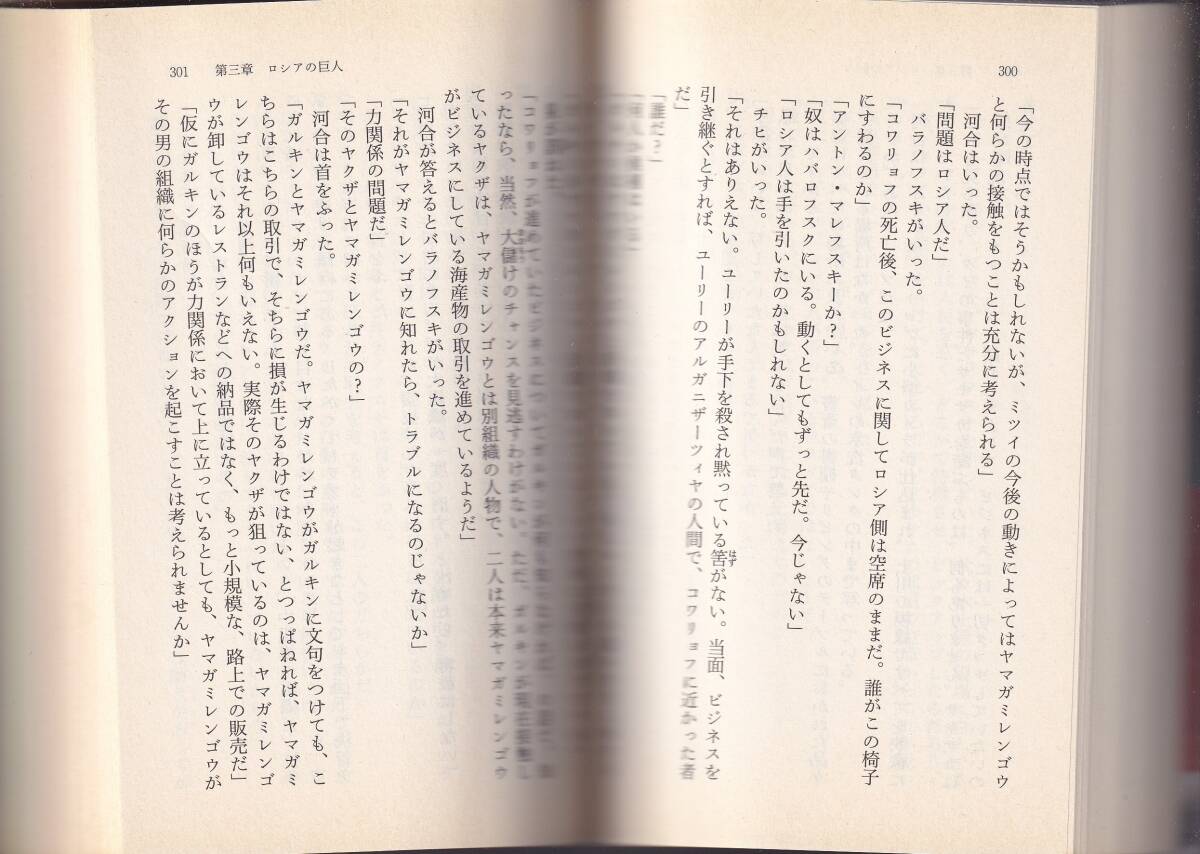 300
「今の時点ではそうかもしれないが、ミツイの今後の動きによってはヤマガミレンゴウ
と何らかの接触をもつことは充分に考えられる」
河合はいった。
「問題はロシア人だ」
バラノフスキがいった。
「コワリョフの死亡後、このビジネスに関してロシア側は空席のままだ。誰がこの椅子
にすわるのか」
「アントン・マレフスキーか?」
「奴はハバロフスクにいる。動くとしてもずっと先だ。今じゃない」
「ロシア人は手を引いたのかもしれない」
チヒがいった。
「それはありえない。ユーリーが手下を殺され黙っている筈がない。当面、ビジネスを
引き継ぐとすれば、ユーリーのアルガニザーツィヤの人間で、コワリョフに近かった者
だ」
「誰だ?」
301 第三章 ロシアの巨人
「コワリョフが進めていたビジネスについてガルキンが
ったなら、当然、大儲けのチャンスを見逃すわけがない。ただ、ガルキンが
ているヤクザは、ヤマガミレンゴウとは別組織の人物で、二人は本来ヤマガミレンゴウ
がビジネスにしている海産物の取引を進めているようだ」
河合が答えるとバラノフスキがいった。
「それがヤマガミレンゴウに知れたら、トラブルになるのじゃないか」
「力関係の問題だ」
「そのヤクザとヤマガミレンゴウの?」
河合は首をふった。
「ガルキンとヤマガミレンゴウだ。ヤマガミレンゴウがガルキンに文句をつけても、こ
ちらはこちらの取引で、そちらに損が生じるわけではない、とつっぱねれば、ヤマガミ
レンゴウはそれ以上何もいえない。実際そのヤクザが狙っているのは、ヤマガミレンゴ
ウが卸しているレストランなどへの納品ではなく、もっと小規模な、路上での販売だ」
「仮にガルキンのほうが力関係において上に立っているとしても、ヤマガミレンゴウが
その男の組織に何らかのアクションを起こすことは考えられませんか」